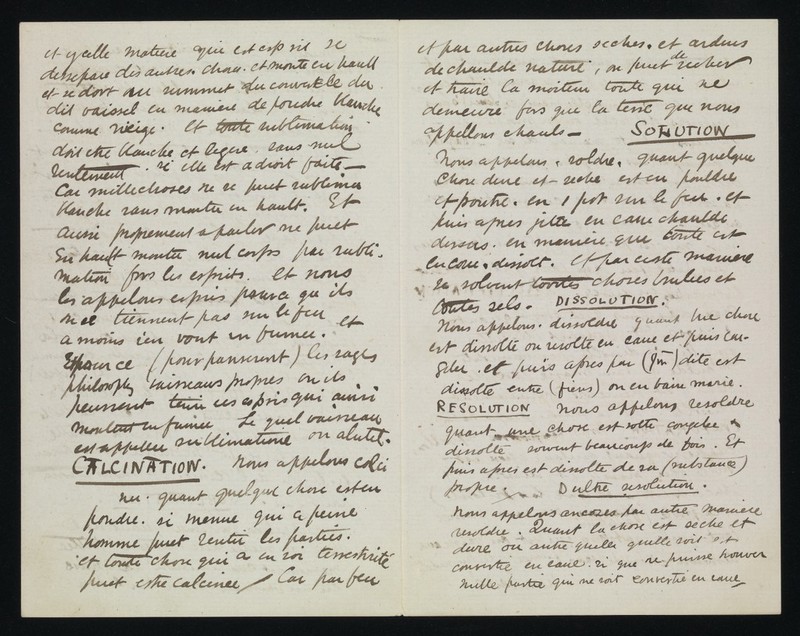 et ycelle matiere qui est esprit se
desepare des autres. chou. et monte en hault
et se dort au summet du couvercle du
dit vaissel en maniere de poudre blanche
comme neige. Et toute sublimation
doit etre blanche et legere. sans nul
si elle est adroit faite —
Car mille choses ne se puet sublimer
blanche sans monter en hault. Et
aussi proprement a parler ne puet
En hault monter nul corps par subli-
mation fors les esprits. Et nous
les appelons esprits pource qu ils
ne se tiennent pas sur le feu
a moins s'en vont en fumee. et
pource (pour panserent) les sages
philosophes vaisseaux propres ou ils
peussent tenir ces esprits qui ainsi
montent en fumee Le quel vaisseau
est appellee sublimatoire ou alutel.
CALCINATION. Nous appelons calci
ner. quant quelque chose est en
poudre. si menue qui a peine
homme puet sentir les parties.
et toute chou qui a en soi terrestrité
puet estre calcinee / Car par feu
et par autres choses seches. et ardens
de chaulde nature, on puet de secher
et traire la moiteur toute qui ne
demeure fors que la terre que nous
appellons chauls — SOLUTION
Nous appelons. soldre. quant quelque
chose dure et seche est en pouldre
et poutre. en 1 pot sur le feu. et
puis apres jette en eaue chaulde
dessus. en maniere que toute est
en eaue. dissolt. Et par ceste maniere
se solvent toutes choses brulees et
toutes sels. DISSOLUTION.
Nous appelons. dissoldre quant une chose
est dissolte ou resolte en eaue et puis con-
gelee. et puis apres par dite est
dissolte entre (fiens) ou en bain marie.
RESOLUTION nous appelons resoldre
quant une chose est solte congelee &
dissolte souvent beaucoup de fois. Et
puis apres est dissolte de sa (substance)
propre. D ultre resolution.
nous appelons encores par autre maniere
resoldre. Quant la chose est seche et
dure ou autre quelle quelle soit est
convertie en eaue. si que ne puisse trouver
nulle partie qui ne soit convertie en eaue